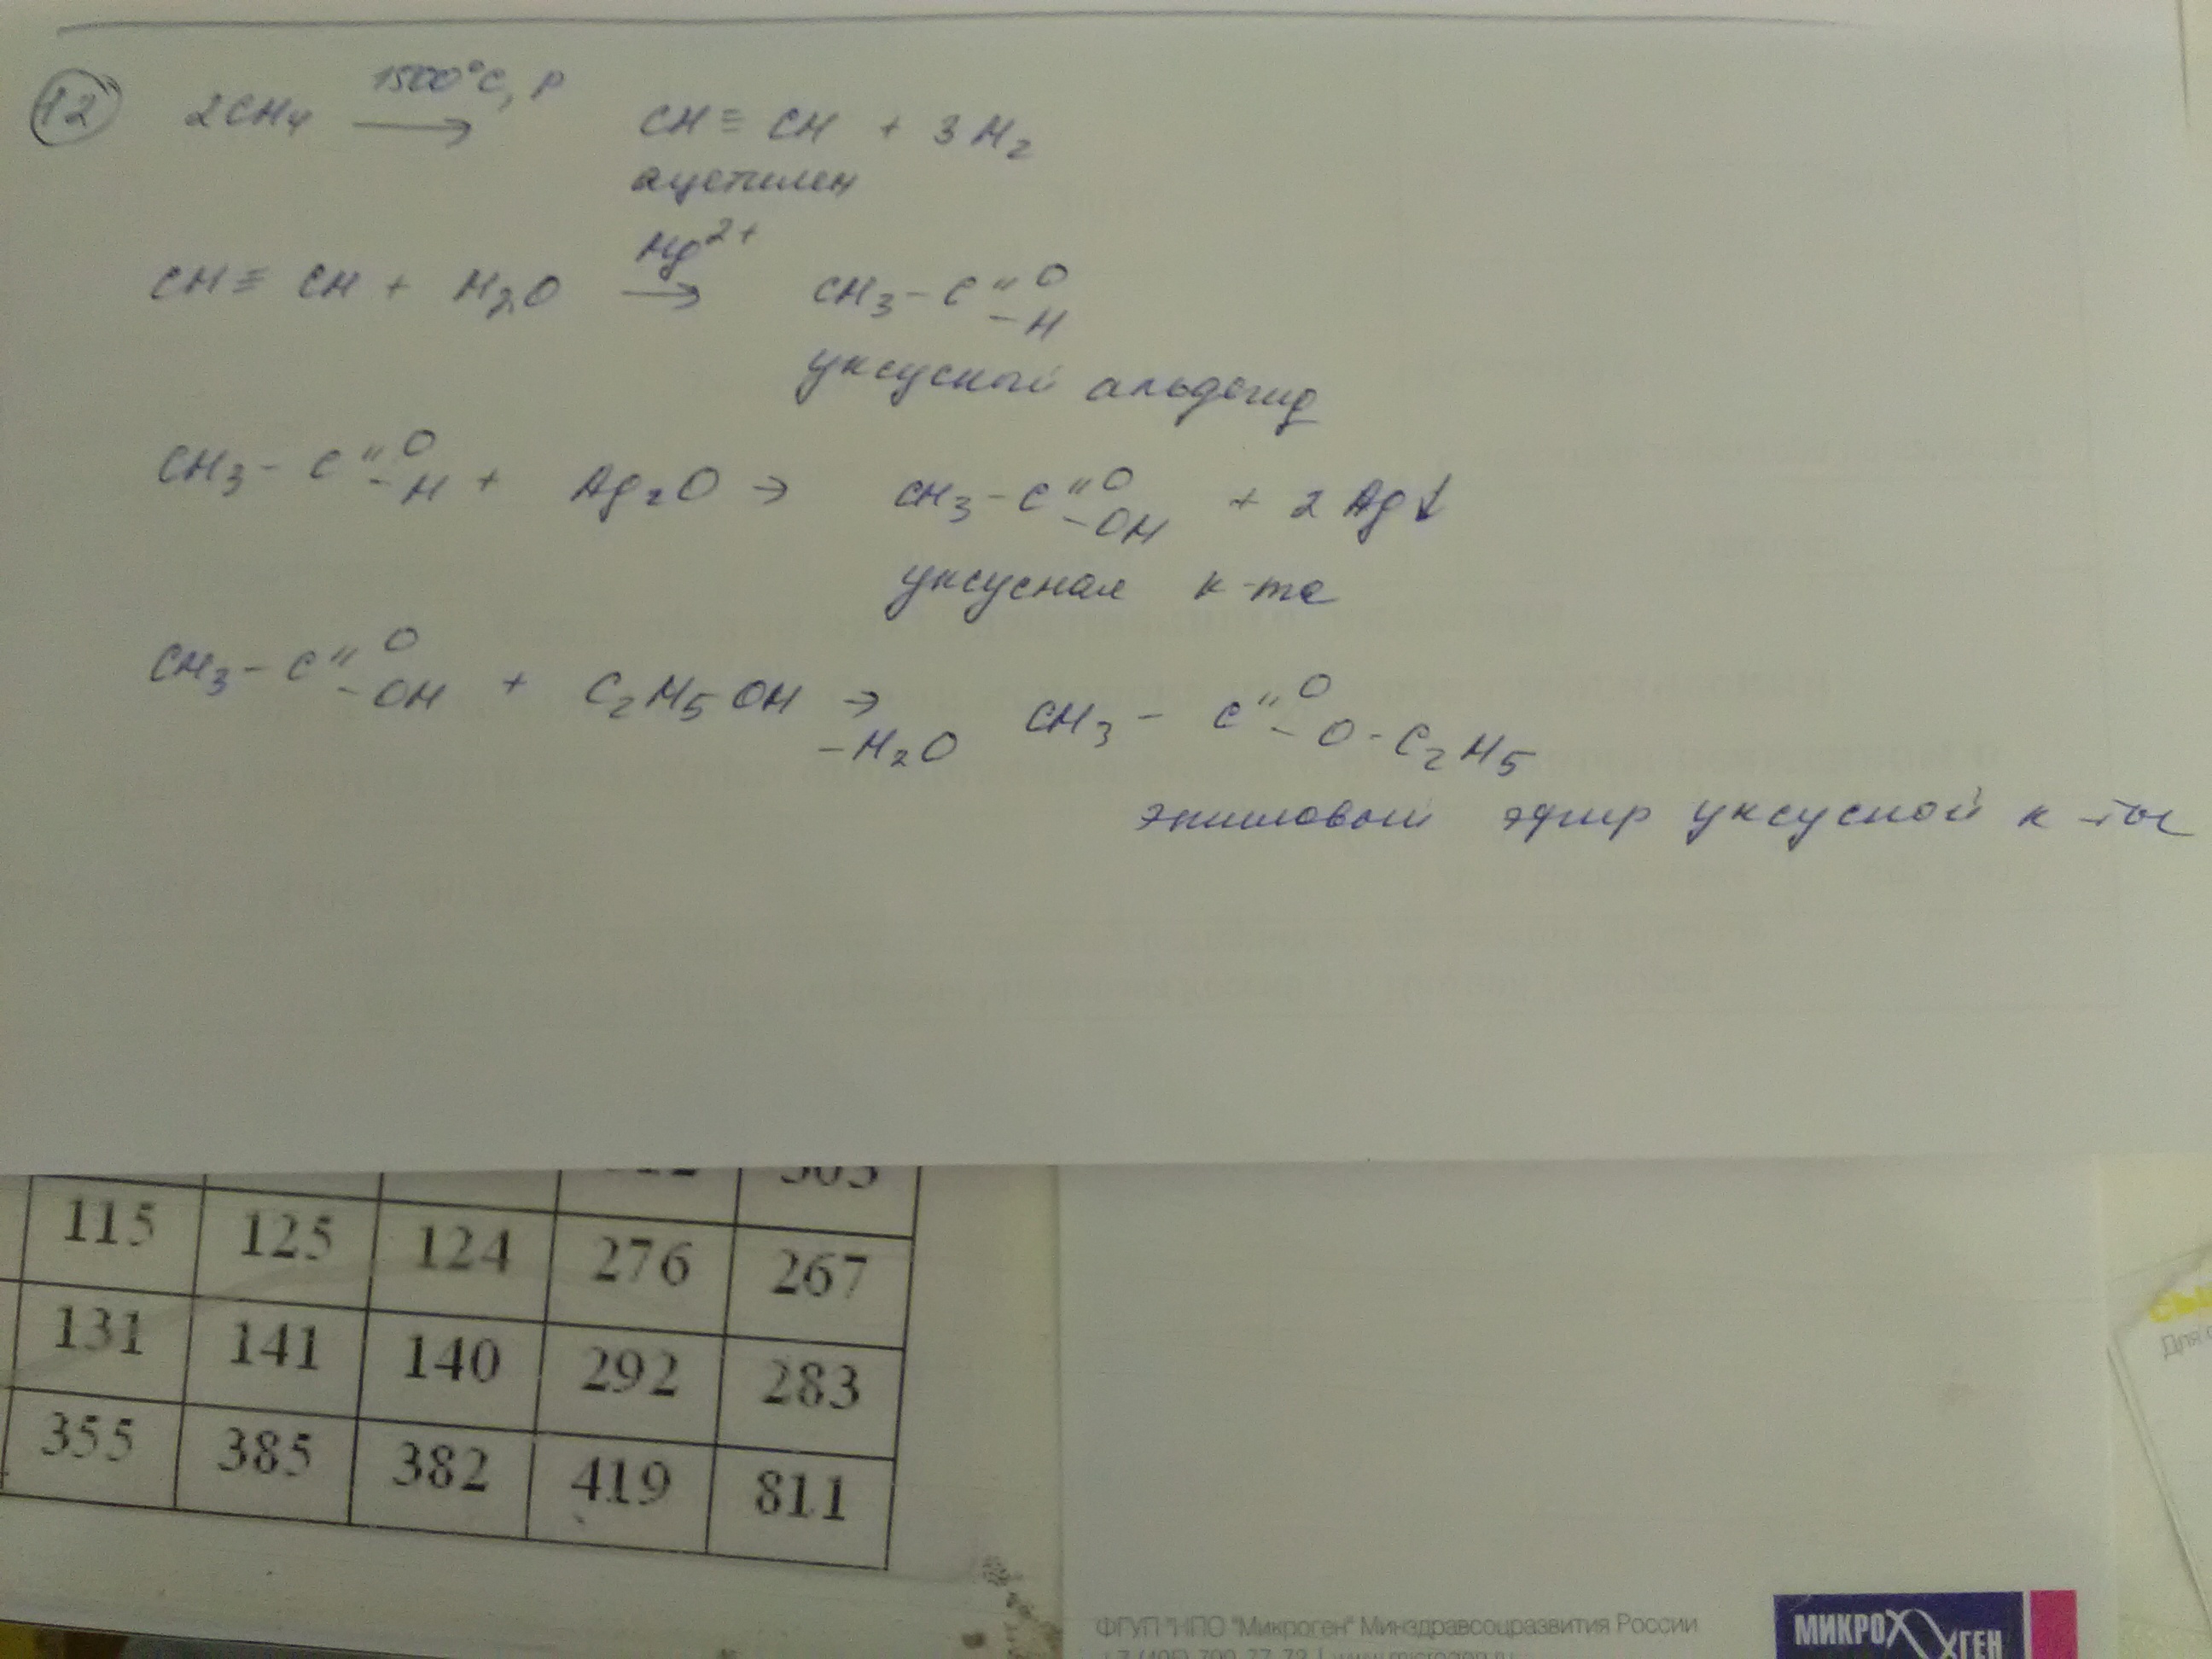 12 2CH4 1500°C, P → CH ≡ CH + 3H2
ацетилен
CH ≡ CH + H2O Hg2+ → CH3 - C =O -H
уксусный альдегид
CH3 - C =O -H + Ag2O → CH3 - C =O -OH + 2Ag↓
уксусная к-та
CH3 - C =O -OH + C2H5OH → -H2O CH3 - C =O -O-C2H5
этиловый эфир уксусной к-ты
115 125 124 276 267
131 141 140 292 283
355 385 382 419 811
ФГУП "НПО "Микроген" Минздравсоцразвития России
МИКРОГЕН